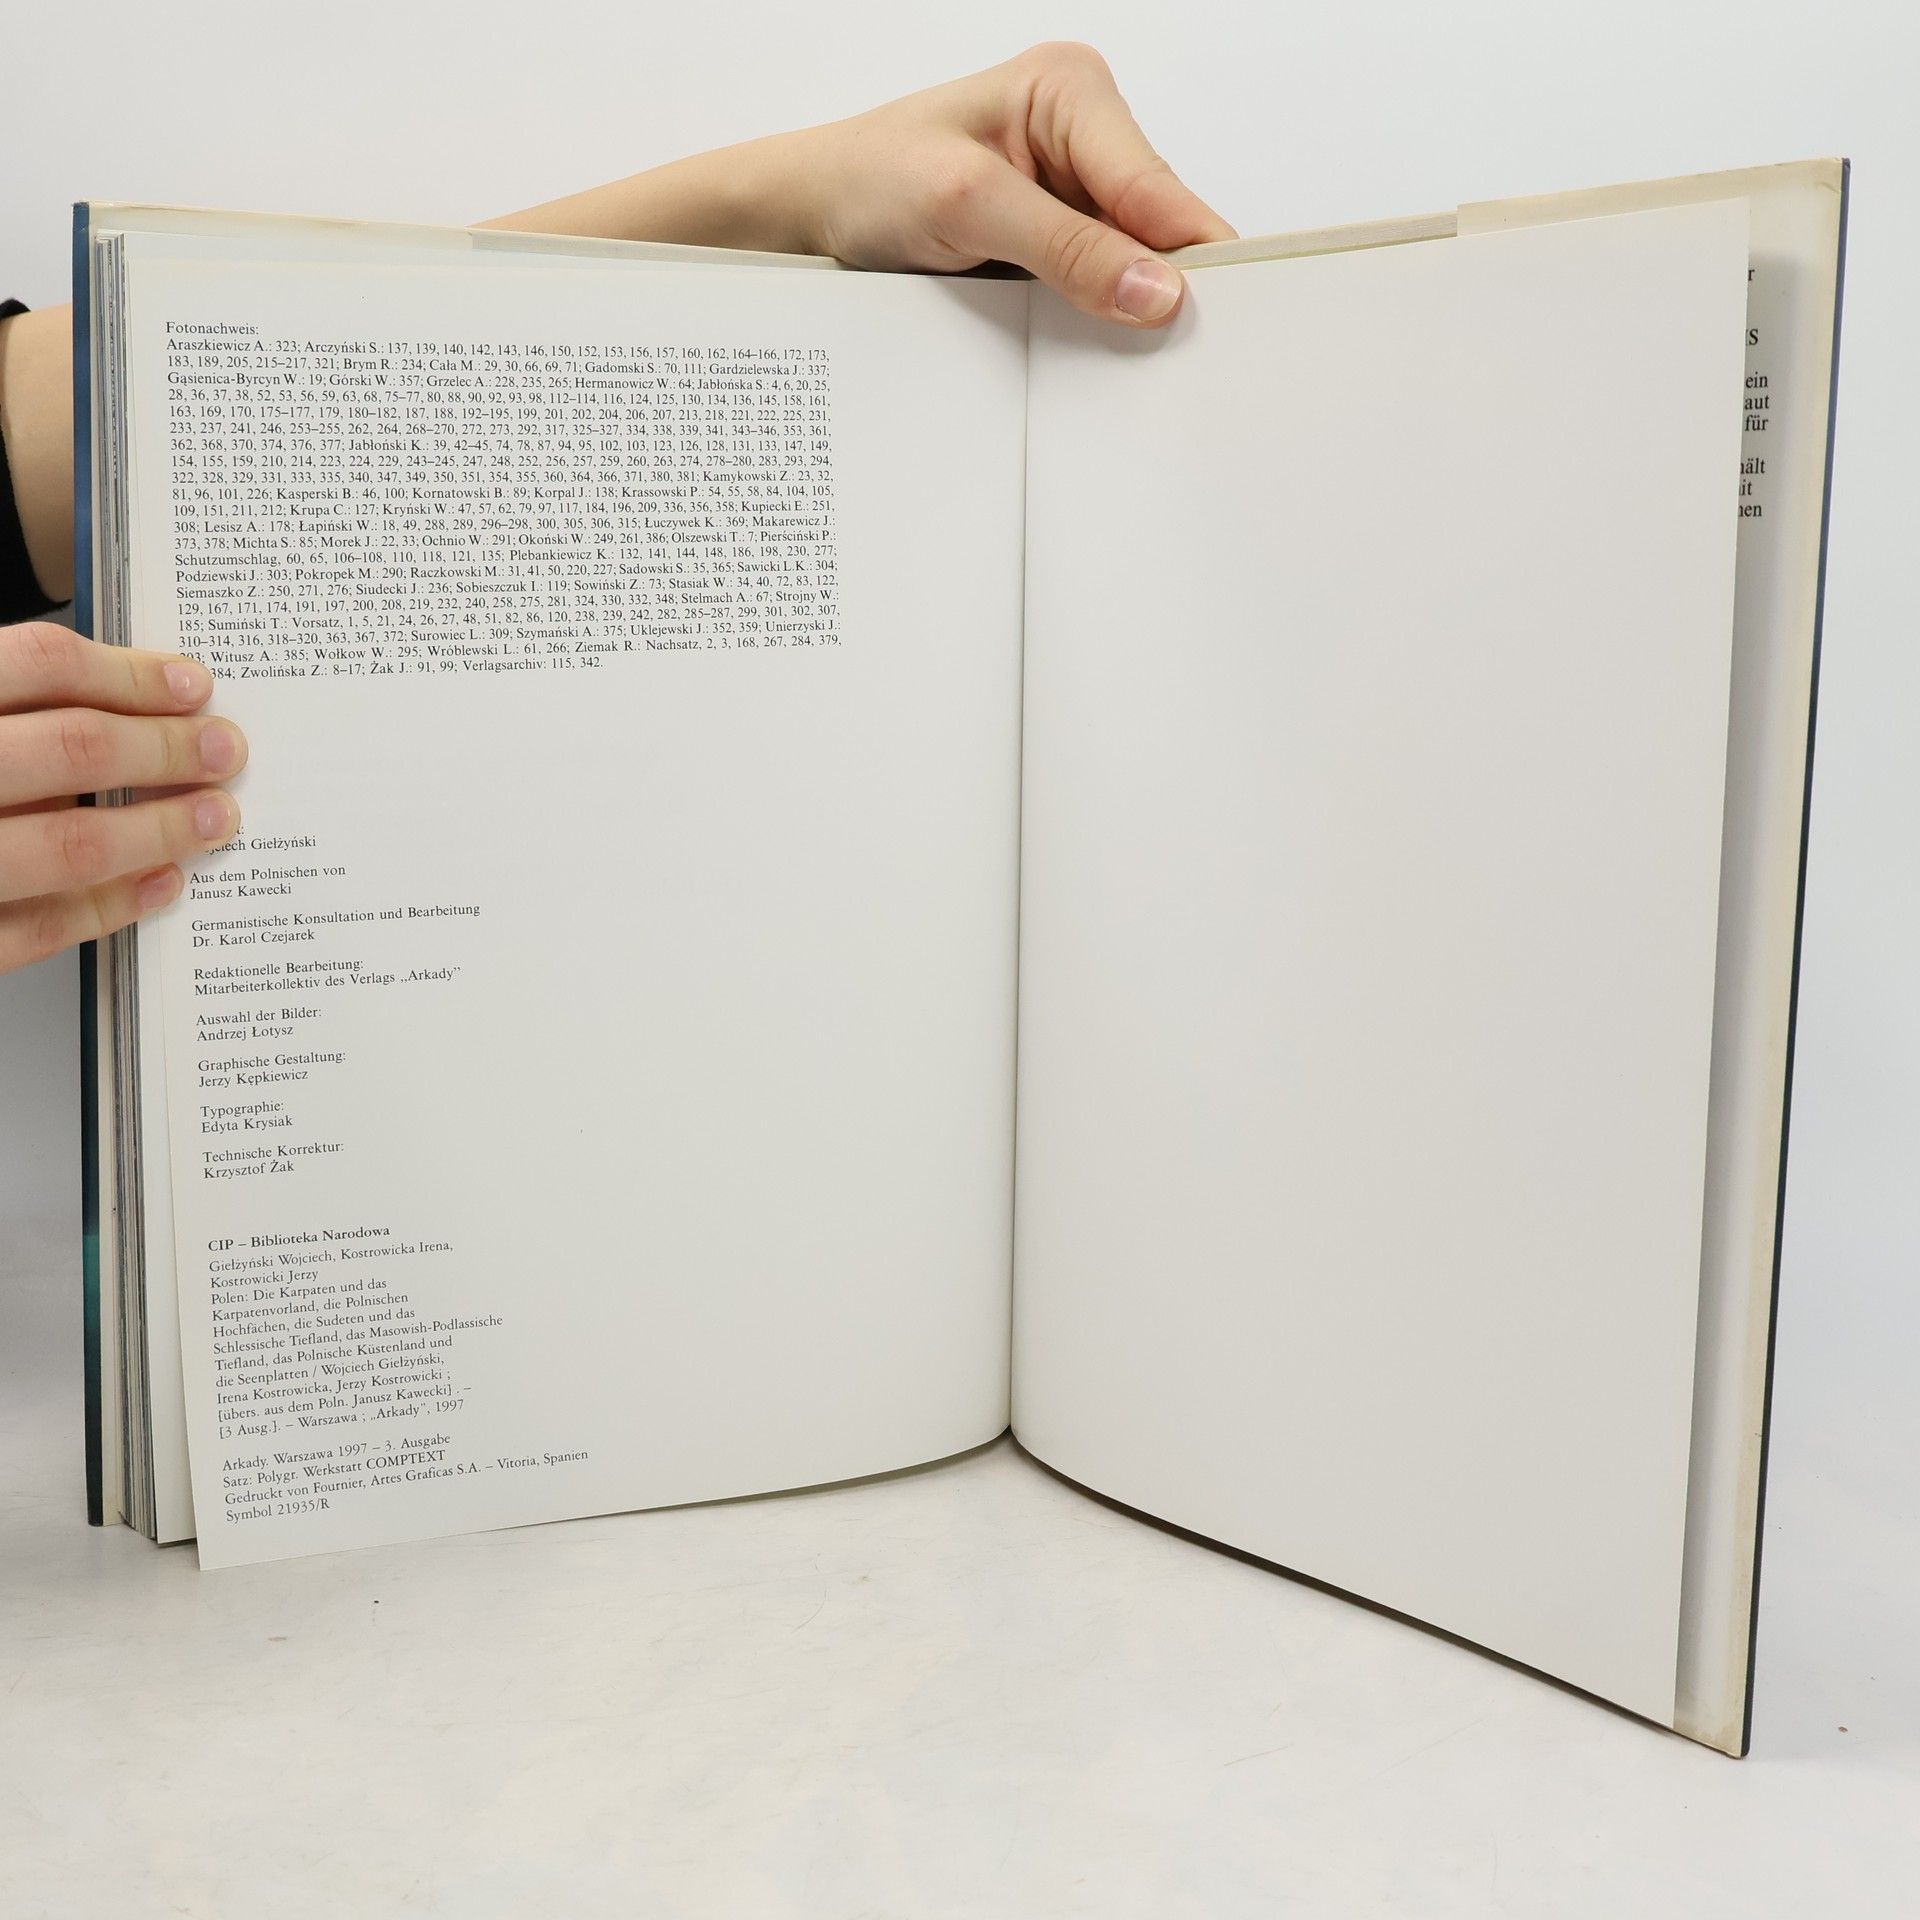 Fotonachweis:
Araszkiewicz A.: 323; Arczyński S.: 137, 139, 140, 142, 143, 146, 150, 152, 153, 156, 157, 160, 162, 164–166, 172, 173,
183, 189, 205, 215–217, 321; Brym R.: 234; Cała M.: 29, 30, 66, 69, 71; Gadomski S.: 70, 111; Gardzielewska J.: 337;
Gąsienica-Byrcyn W.: 19; Górski W.: 357; Grzelec A.: 228, 235, 265; Hermanowicz W.: 64; Jabłońska S.: 4, 6, 20, 25,
28, 36, 37, 38, 52, 53, 56, 59, 63, 68, 75–77, 80, 88, 90, 92, 93, 98, 112–114, 116, 124, 125, 130, 134, 136, 145, 158, 161,
163, 169, 170, 175–177, 179, 180–182, 187, 188, 192–195, 199, 201, 202, 204, 206, 207, 213, 218, 221, 222, 225, 231,
233, 237, 241, 246, 253–255, 262, 264, 268–270, 272, 273, 292, 317, 325–327, 334, 338, 339, 341, 343–346, 353, 361,
362, 368, 370, 374, 376, 377; Jabłoński K.: 39, 42–45, 74, 78, 87, 94, 95, 102, 103, 123, 126, 128, 131, 133, 147, 149,
154, 155, 159, 210, 214, 223, 224, 229, 243–245, 247, 248, 252, 256, 257, 259, 260, 263, 274, 278–280, 283, 293, 294,
322, 328, 329, 331, 333, 335, 340, 347, 349, 350, 351, 354, 355, 360, 364, 366, 371, 380, 381; Kamykowski Z.: 23, 32,
81, 96, 101, 226; Kasperski B.: 46, 100; Kornatowski B.: 89; Korpal J.: 138; Krassowski P.: 54, 55, 58, 84, 104, 105,
109, 151, 211, 212; Krupa C.: 127; Kryński W.: 47, 57, 62, 79, 97, 117, 184, 196, 209, 336, 356, 358; Kupiecki E.: 251,
308; Lesisz A.: 178; Łapiński W.: 18, 49, 288, 289, 296–298, 300, 305, 306, 315; Łuczywek K.: 369; Makarewicz J.:
373, 378; Michta S.: 85; Morek J.: 22, 33; Ochnio W.: 291; Okoński W.: 249, 261, 386; Olszewski T.: 7; Pierściński P.:
Schutzumschlag, 60, 65, 106–108, 110, 118, 121, 135; Plebankiewicz K.: 132, 141, 144, 148, 186, 198, 230, 277;
Podziewski J.: 303; Pokropek M.: 290; Raczkowski M.: 31, 41, 50, 220, 227; Sadowski S.: 35, 365; Sawicki L.K.: 304;
Siemaszko Z.: 250, 271, 276; Siudecki J.: 236; Sobieszczuk I.: 119; Sowiński Z.: 73; Stasiak W.: 34, 40, 72, 83, 122,
129, 167, 171, 174, 191, 197, 200, 208, 219, 232, 240, 258, 275, 281, 324, 330, 332, 348; Stelmach A.: 67; Strojny W.:
185; Sumiński T.: Vorsatz, 1, 5, 21, 24, 26, 27, 48, 51, 82, 86, 120, 238, 239, 242, 282, 285–287, 299, 301, 302, 307,
310–314, 316, 318–320, 363, 367, 372; Surowiec L.: 309; Szymański A.: 375; Uklejewski J.: 352, 359; Unierzyski J.:
Witusz A.: 385; Wołkow W.: 295; Wróblewski L.: 61, 266; Ziemak R.: Nachsatz, 2, 3, 168, 267, 284, 379,
384; Zwolińska Z.: 8–17; Żak J.: 91, 99; Verlagsarchiv: 115, 342.
Giełżyński
Aus dem Polnischen von
Janusz Kawecki
Germanistische Konsultation und Bearbeitung
Dr. Karol Czejarek
Redaktionelle Bearbeitung:
Mitarbeiterkollektiv des Verlags ,,Arkady”
Auswahl der Bilder:
Andrzej Łotysz
Graphische Gestaltung:
Jerzy Kępkiewicz
Typographie:
Edyta Krysiak
Technische Korrektur:
Krzysztof Żak
CIP – Biblioteka Narodowa
Giełżyński Wojciech, Kostrowicka Irena,
Kostrowicki Jerzy
Polen: Die Karpaten und das
Karpatenvorland, die Polnischen
Hochfächen, die Sudeten und das
Schlessische Tiefland, das Masowish-Podlassische
Tiefland, das Polnische Küstenland und
die Seenplatten / Wojciech Giełżyński,
Irena Kostrowicka, Jerzy Kostrowicki ;
[übers. aus dem Poln. Janusz Kawecki] . –
[3 Ausg.]. – Warszawa ; „Arkady”, 1997
Arkady. Warszawa 1997 – 3. Ausgabe
Satz: Polygr. Werkstatt COMPTEXT
Gedruckt von Fournier, Artes Graficas S.A. – Vitoria, Spanien
Symbol 21935/R
ein
für